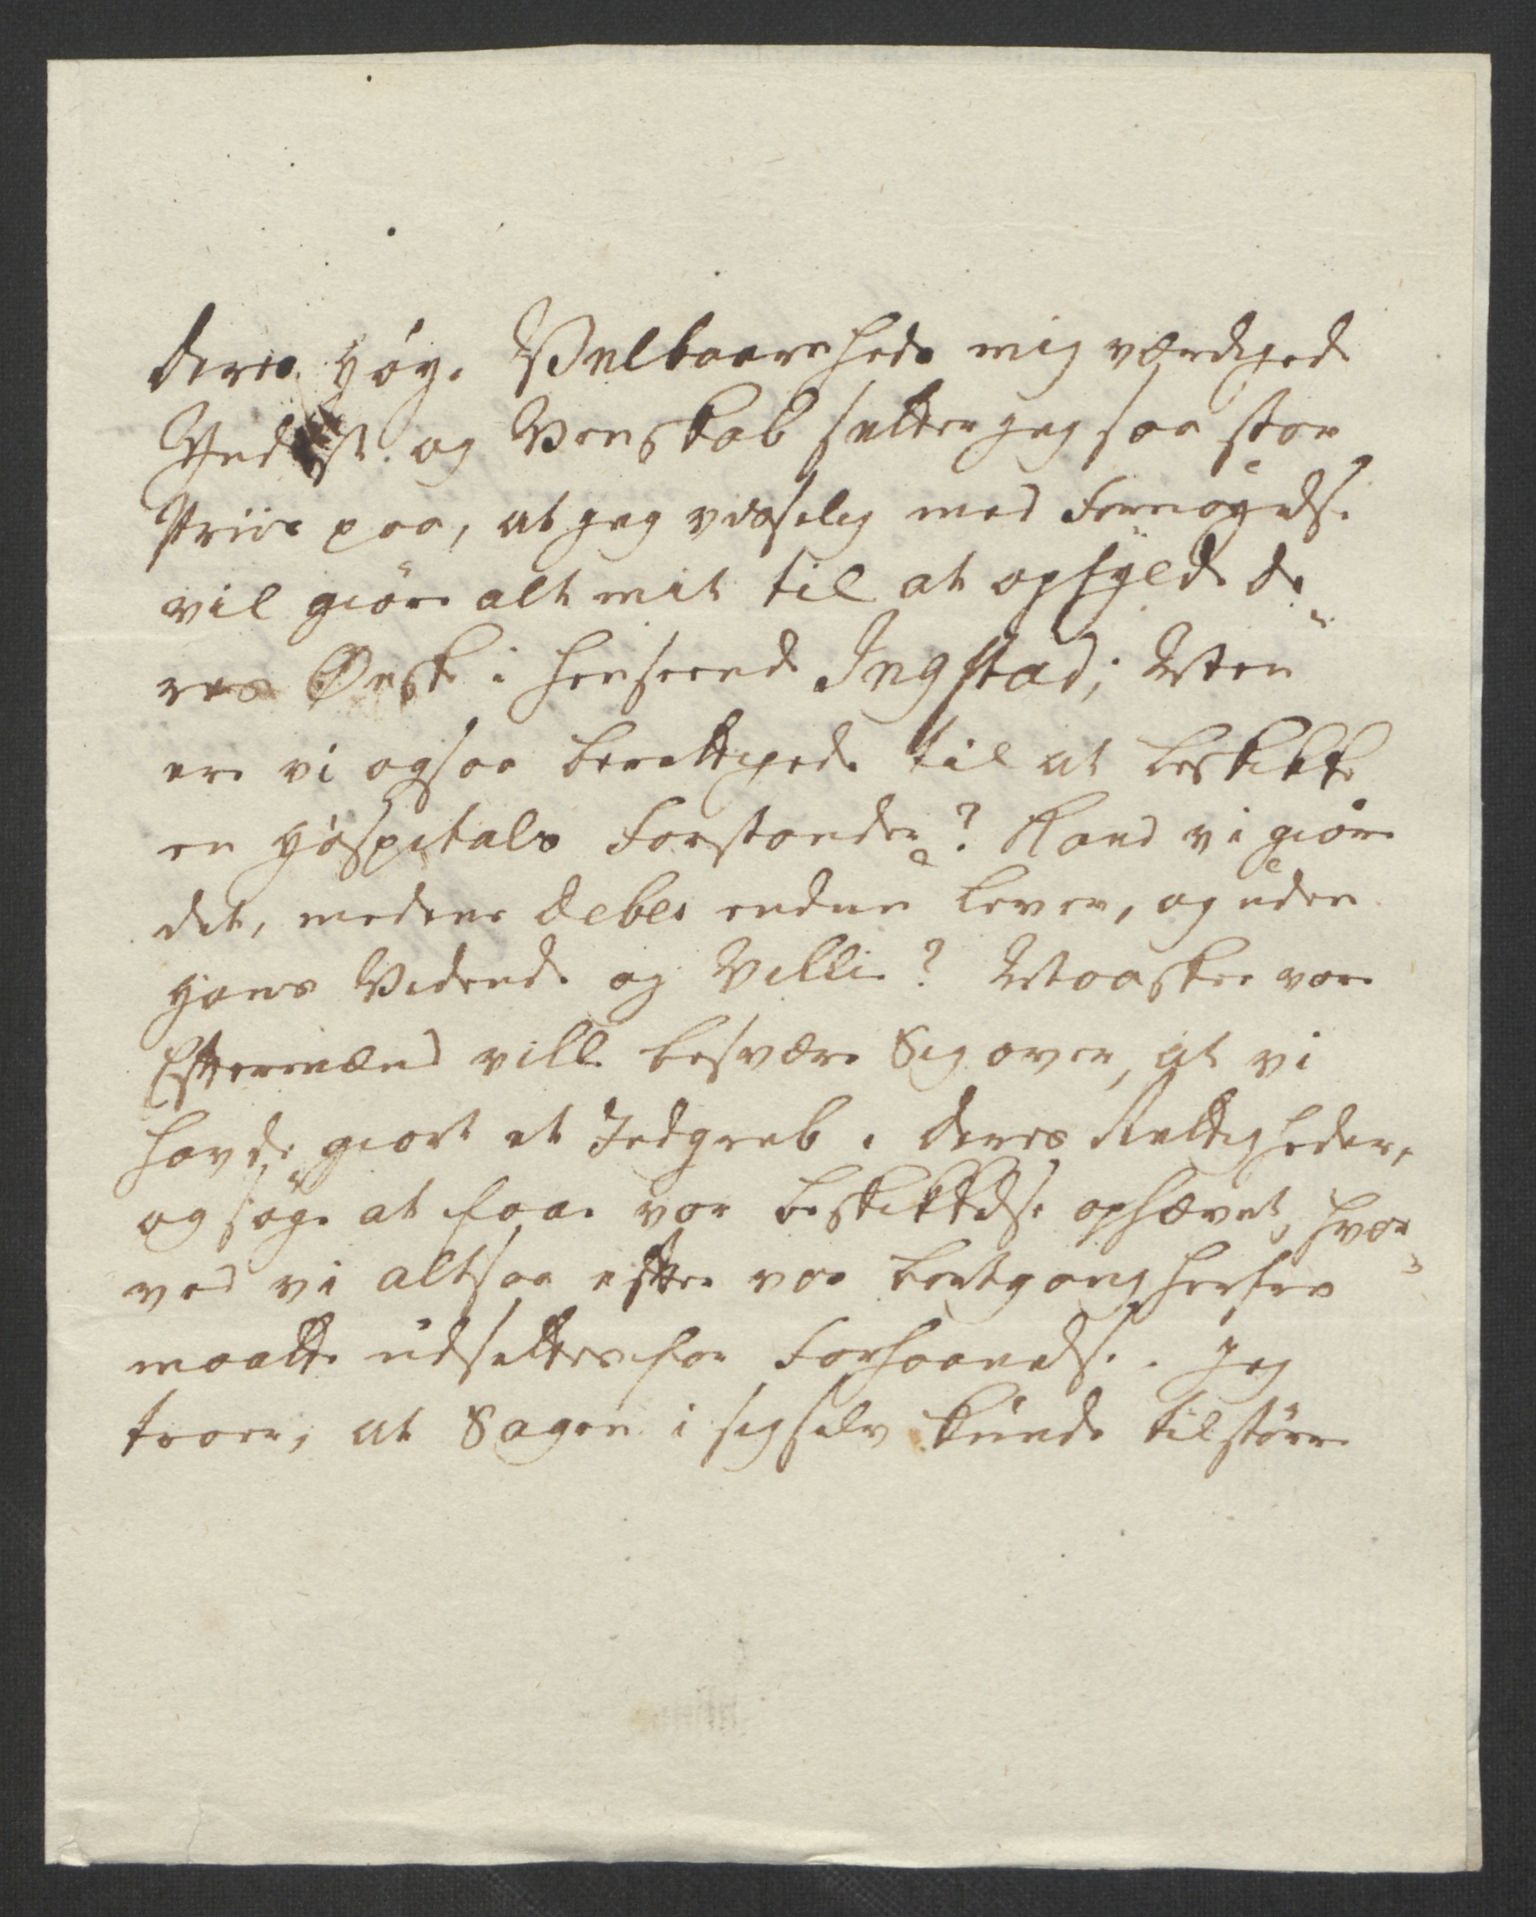 Deres Höye Velbaarenheds mig værdigede
Yndest og Venskab setter jeg saa stor
Priis paa, at jeg visselig med Fornöyelse
vil giöre alt mit til at opfylde De
res Önske i henseende Ingstad; Men
ere vi ogsaa berettigede til at beskikke
en Hospitals Forstander? Kand vi giöre
det, medens Debes endnu lever, og uden
Hans Vidende og Villie? Maaskee vore
Eftermænd ville besvære Sig over, at vi
havde giort et Indgreb i deres Rettigheder,
og söge at faae vor beskikkelse ophævet, hvor
ved vi altsaa efter vor bortgang herfra
maatte udsettes for Forhaanelse. Jeg
troer, at Sagen i sig selv kunde tilstörre